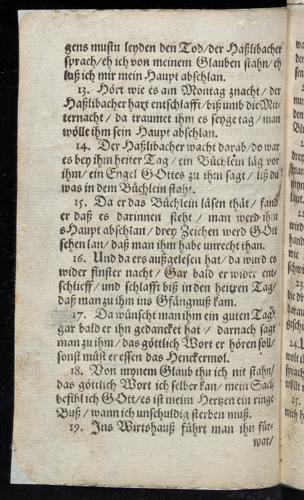 gens mustu leyden den Tod/der Haßlibacher
sprach/eh ich von meinem Glauben stahn/eh
luß ich mir mein Haupt abschlan.
13. Hört wie es am Montag znacht/der
Haßlibacher hart entschlafft/biß umb die Mit-
ternacht/da traumet ihm es seyge tag/man
wölle ihm sein Haupt abschlan.
14. Der Haßlibacher wacht darab/do war
es bey ihm heiter Tag/ein Büchlein lag vor
ihm/ein Engel Gottes zu ihm sagt/liß du
was in dem Büchlein staht.
15. Da er das Büchlein läsen thät/fand
er daß es darinnen steht/man werd ihm
s Haupt abschlan/drey Zeichen werd Gott
sehen lan/daß man ihm habe unrecht than.
16. Und da ers außgelesen hat/da wird es
wider finster nacht/Gar bald er wider ent-
schlieff/und schlafft biß in den heitren Tag/
daß man zu ihm ins Gfängnuß kam.
17. Da wünscht man ihm ein guten Tag/
gar bald er ihn gedancket hat/darnach sagt
man zu ihm/das göttlich Wort er hören soll/
sonst müst er essen das Henckermol.
18. Von mynem Glaub thu ich nit stahn/
das göttlich Wort ich selber kan/mein Sach
befihl ich Gott/es ist meim Hertzen ein ringe
Buß/wann ich unschuldig sterben muß.
19. Ins Wirtshauß führt man ihn für-
war/